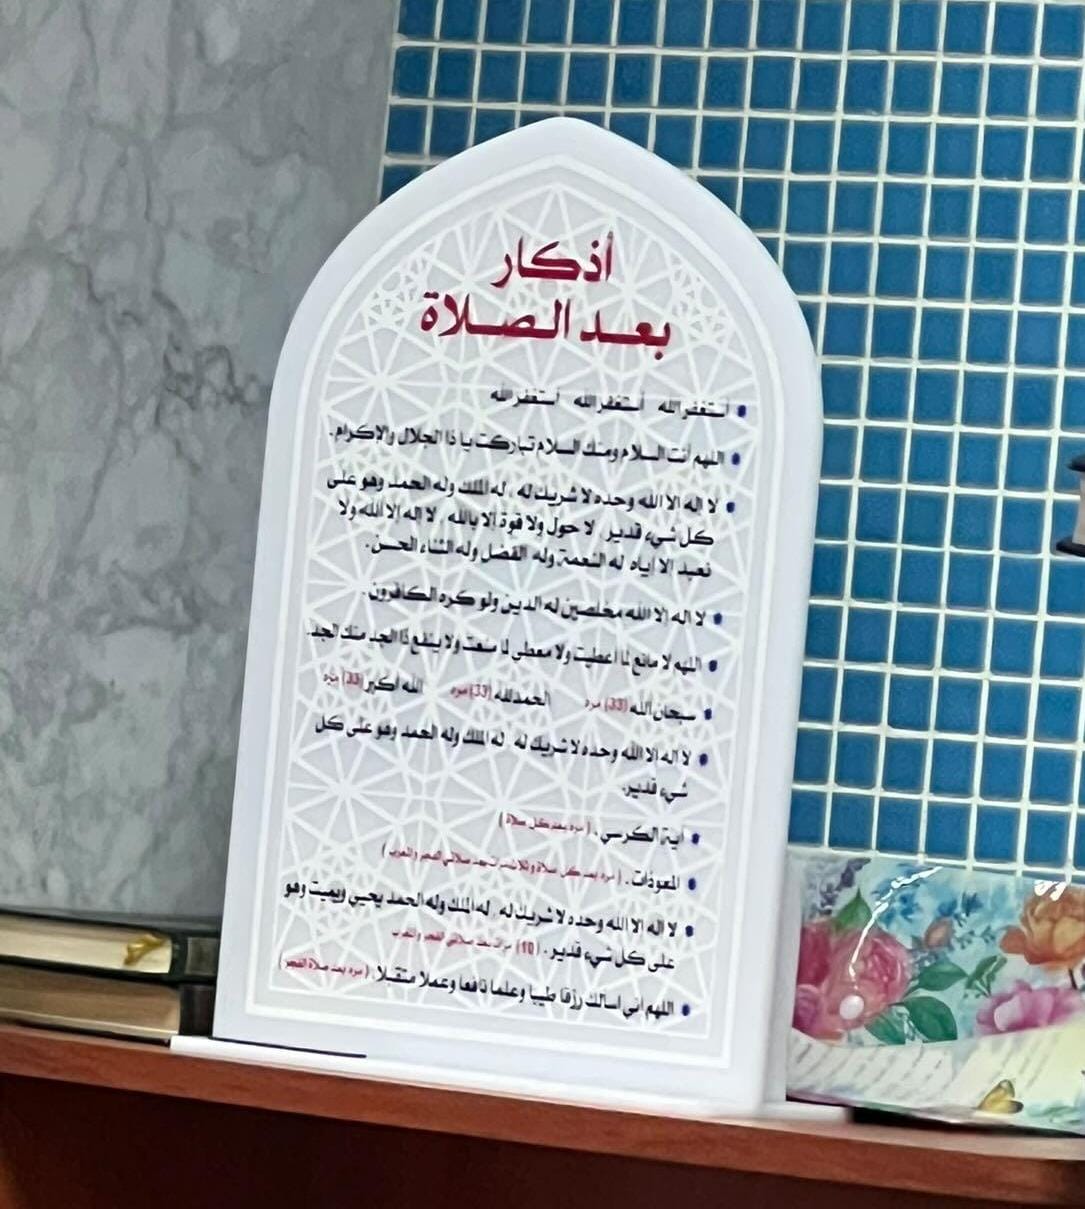 أذكار
بعد الصلاة
أستغفر الله أستغفر الله أستغفر الله
اللهم أنت السلام ومنك السلام تباركت يا ذا الجلال والإكرام.
لا اله الا الله وحده لا شريك له ، له الملك وله الحمد وهو على
كل شيء قدير ، لا حول ولا قوة الا بالله ، لا إله إلا الله ولا
نعبد الا إياه له النعمة وله الفضل وله الثناء الحسن.
لا اله إلا الله مخلصين له الدين ولو كره الكافرون.
اللهم لا مانع لما اعطيت ولا معطي لما منعت ولا ينفع ذا الجد منك الجد.
سبحان الله (33) مره الحمدلله (33) مره الله أكبر (33) مره
لا اله إلا الله وحده لا شريك له له الملك وله الحمد وهو على كل
شيء قدير.
آية الكرسي. (مره بعد كل صلاة)
المعوذات. (مره بعد كل صلاة وثلاث مرات بعد صلاتي الفجر والمغرب)
لا اله إلا الله وحده لا شريك له ، له الملك وله الحمد يحيي ويميت وهو
على كل شيء قدير. (10) مرات بعد صلاتي الفجر والمغرب
اللهم اني اسالك رزقا طيبا وعلما نافعا وعملا متقبلا. (مره بعد صلاة الفجر)